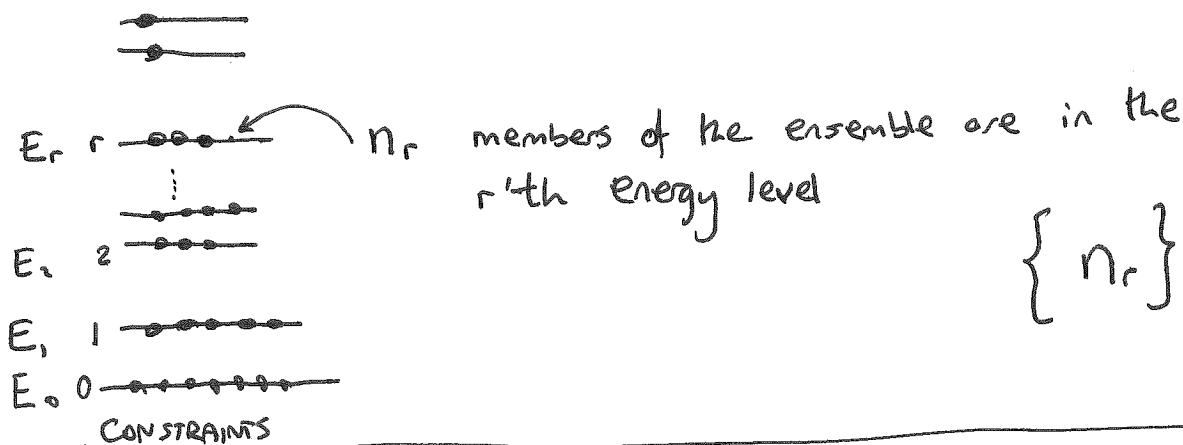 E_r r n_r members of the ensemble are in the
r'th energy level
{ n_r }
E_2 2
E_1 1
E_0 0
CONSTRAINTS